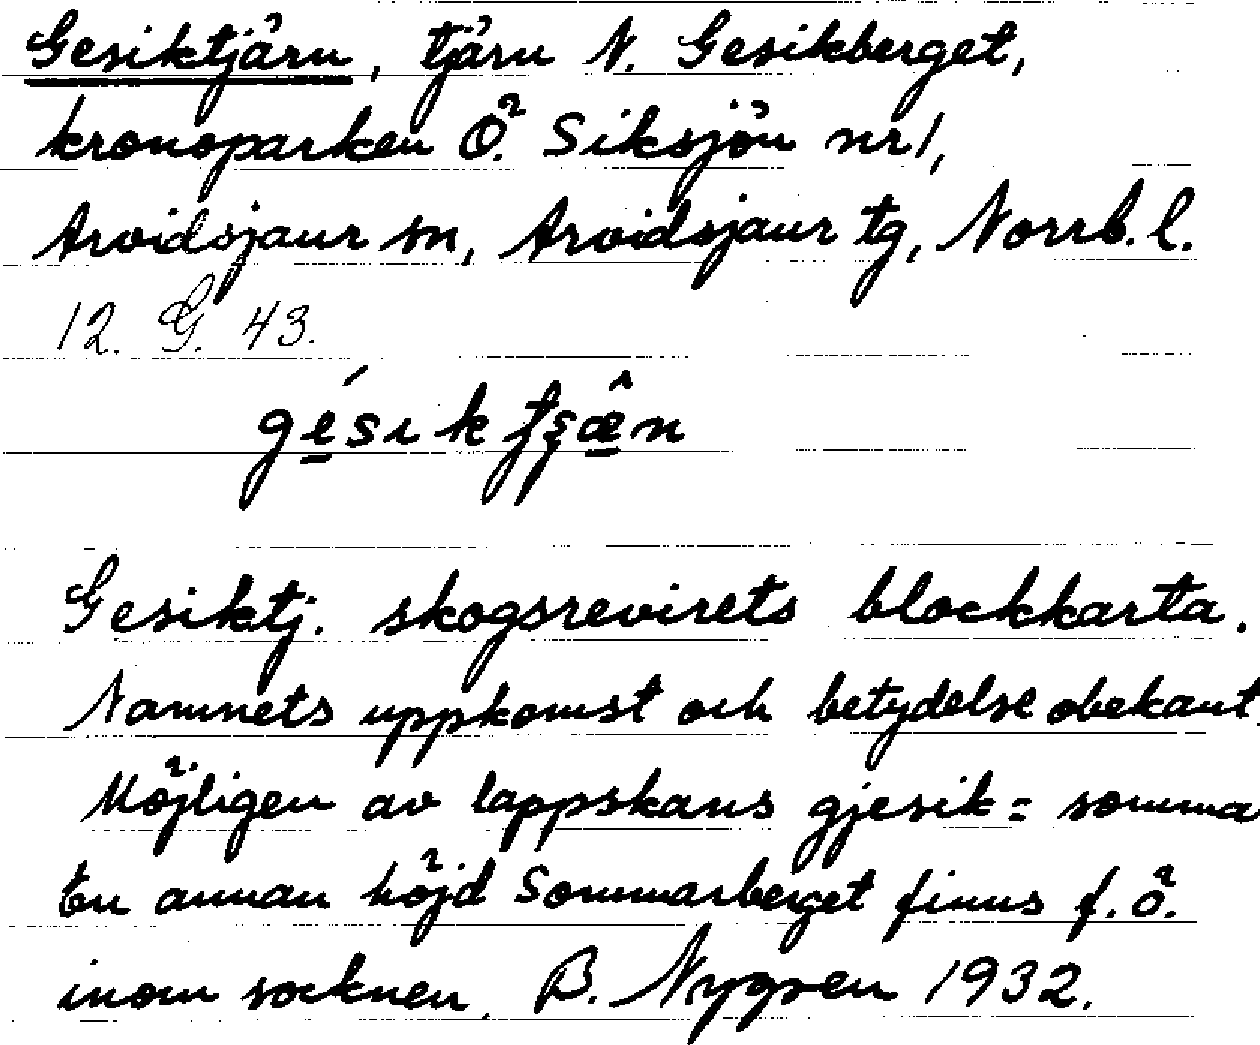 Gesiktjärn, tjärn N. Gesikberget,
kronoparken Ö. Siksjön nr 1,
Arvidsjaur sn, Arvidsjaur tg, Norrb. l.
12. G. 43.
Gesiktj. skogsrevirets blockkarta.
Namnets uppkomst och betydelse obekant.
Möjligen av lappskans gjesik = somma
En annan höjd Sommarberget finns f. ö.
inom socknen. B. Nygren 1932.